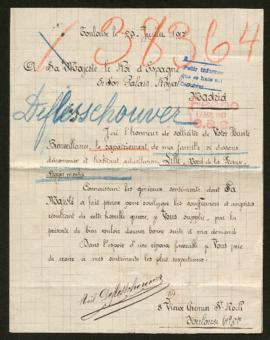 Toulouse le 29 Juillet 1917
37364
A Sa Majesté le Roi d'Espagne
En son Palais Royal
Madrid
Deflesschouver
J'ai l'honneur de solliciter de Votre Haute
Bienveillance, le rapatriement de ma famille si dessous
dénommée et habitant actuellement Lille, Nord de la France,
Connaissant les généreux sentiments dont Sa
Majesté a fait preuve pour soulager les souffrances et angoisses
résultant de cette horrible guerre, je Vous supplie, par la
présente de bien vouloir donner bonne suite à ma demande.
Dans l'espoir d'une réponse favorable je Vous prie
de croire à mes sentiments les plus respectueux.
Deflesschouver
8 Vieux Chemin St Roch
Toulouse